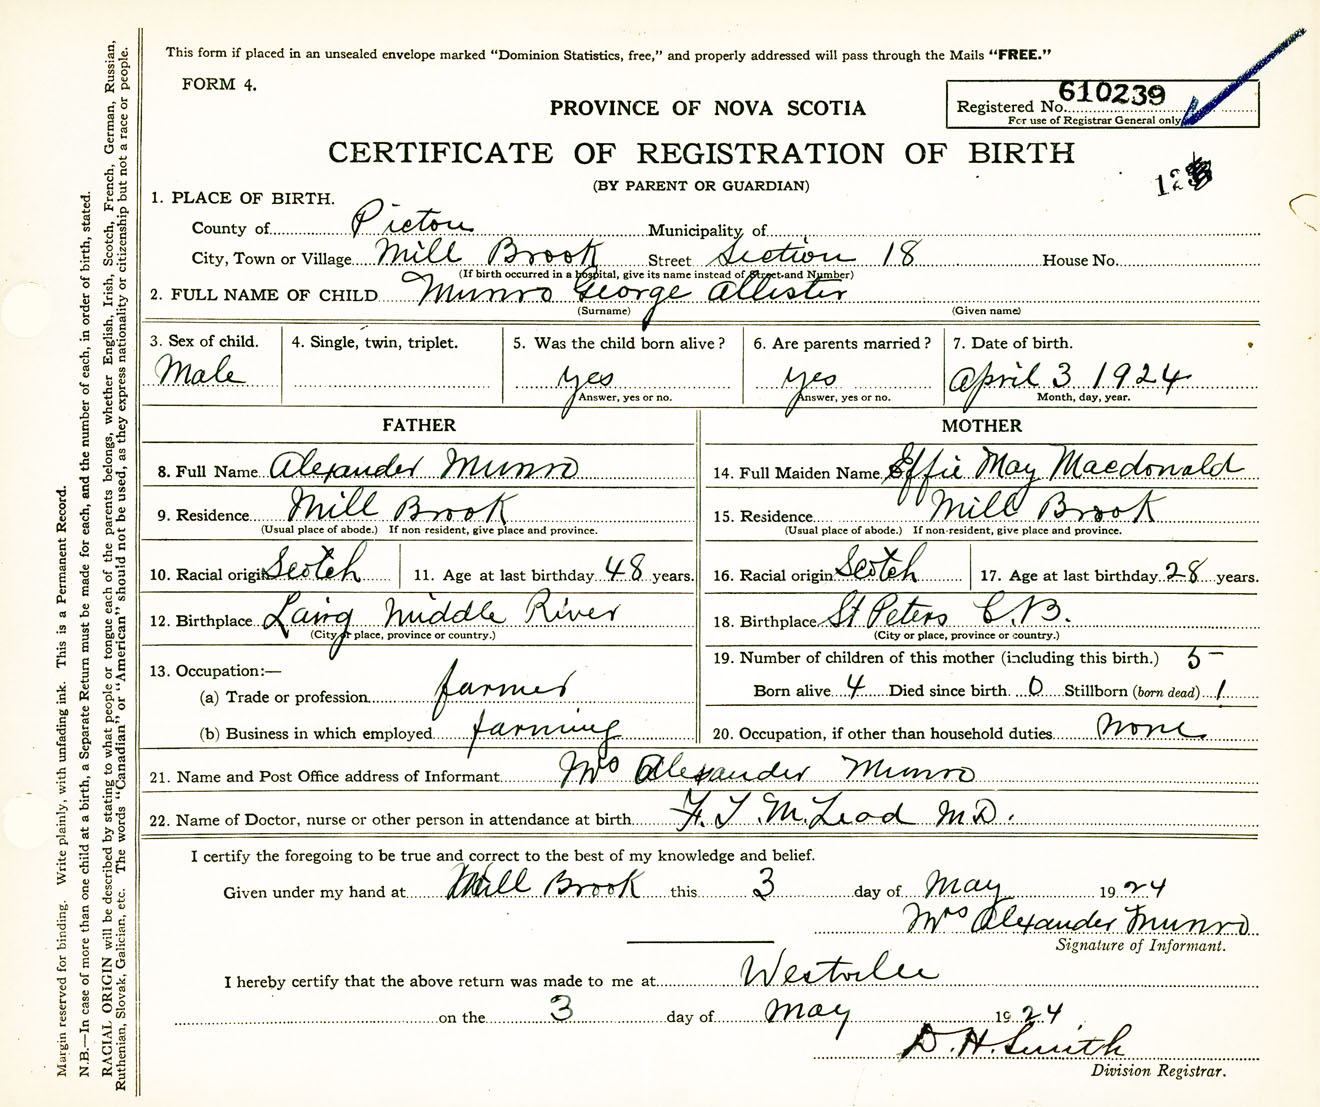 This form if placed in an unsealed envelope marked “Dominion Statistics, free,” and properly addressed will pass through the Mails “FREE.”
FORM 4.
PROVINCE OF NOVA SCOTIA
Registered No. 610239
For use of Registrar General only
CERTIFICATE OF REGISTRATION OF BIRTH
(BY PARENT OR GUARDIAN)
12
1. PLACE OF BIRTH.
County of Pictou Municipality of
City, Town or Village Mill Brook Street Section 18 House No.
(If birth occurred in a hospital, give its name instead of Street and Number)
2. FULL NAME OF CHILD Munro George Allister
(Surname) (Given name)
3. Sex of child. 4. Single, twin, triplet. 5. Was the child born alive? 6. Are parents married? 7. Date of birth.
Male yes yes April 3 1924
Answer, yes or no. Answer, yes or no. Month, day, year.
FATHER
8. Full Name Alexander Munro
9. Residence Mill Brook
(Usual place of abode.) If non-resident, give place and province.
10. Racial origin Scotch 11. Age at last birthday 48 years.
12. Birthplace Lairg Middle River
(City or place, province or country.)
13. Occupation:—
(a) Trade or profession farmer
(b) Business in which employed farming
MOTHER
14. Full Maiden Name Effie May Macdonald
15. Residence Mill Brook
(Usual place of abode.) If non-resident, give place and province.
16. Racial origin Scotch 17. Age at last birthday 28 years.
18. Birthplace St Peters C.B.
(City or place, province or country.)
19. Number of children of this mother (including this birth.) 5
Born alive 4 Died since birth. 0 Stillborn (born dead) 1
20. Occupation, if other than household duties None
21. Name and Post Office address of Informant Mrs Alexander Munro
22. Name of Doctor, nurse or other person in attendance at birth F. T. McLeod M.D.
I certify the foregoing to be true and correct to the best of my knowledge and belief.
Given under my hand at Mill Brook this 3 day of May 1924
Mrs Alexander Munro
Signature of Informant.
I hereby certify that the above return was made to me at Westville
on the 3 day of May 1924
D. H. Smith
Division Registrar.
Margin reserved for binding. Write plainly, with unfading ink. This is a Permanent Record.
N.B.—In case of more than one child at a birth, a Separate Return must be made for each, and the number of each, in order of birth, stated.
RACIAL ORIGIN will be described by stating to what people or tongue each of the parents belongs, whether English, Irish, Scotch, French, German, Russian,
Ruthenian, Slovak, Galician, etc. The words “Canadian” or “American” should not be used, as they express nationality or citizenship but not a race or people.